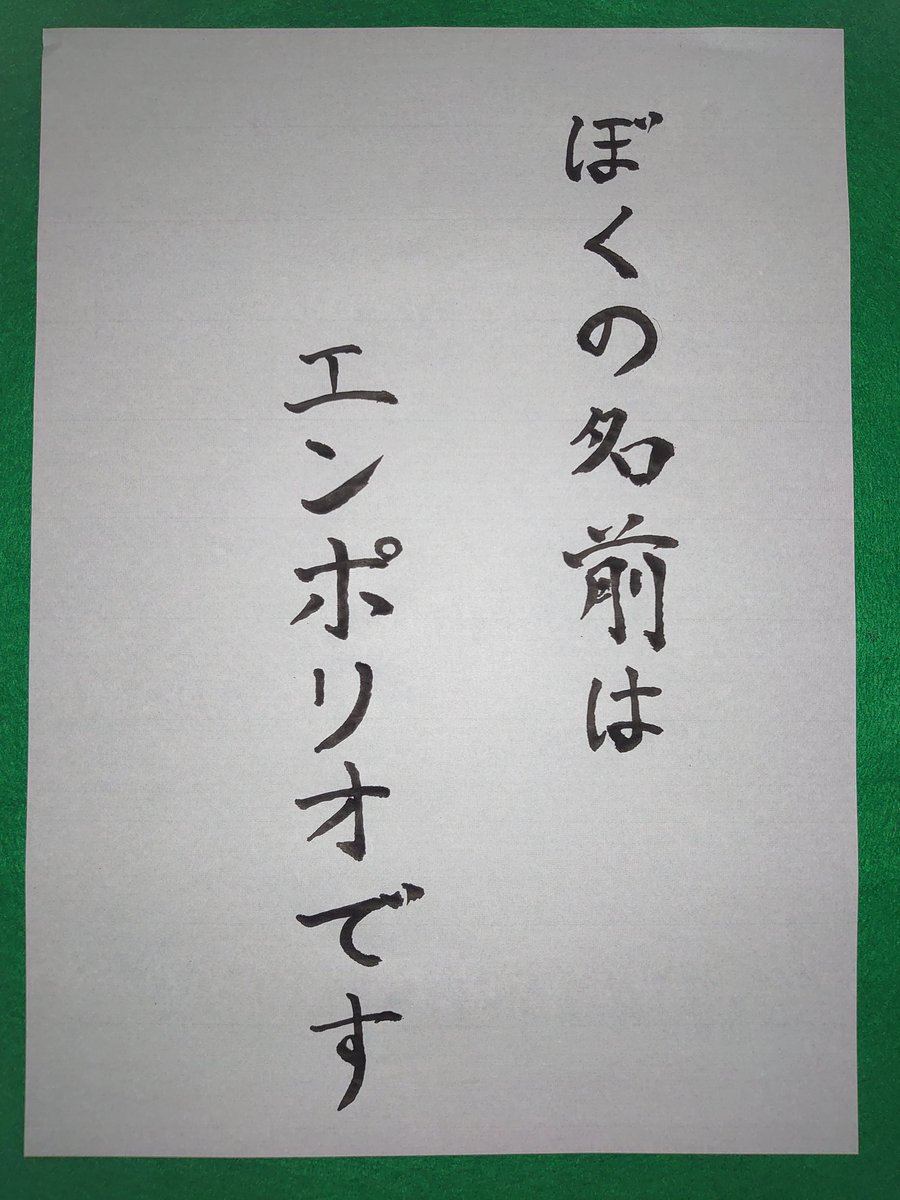 ぼくの名前は
エンポリオです